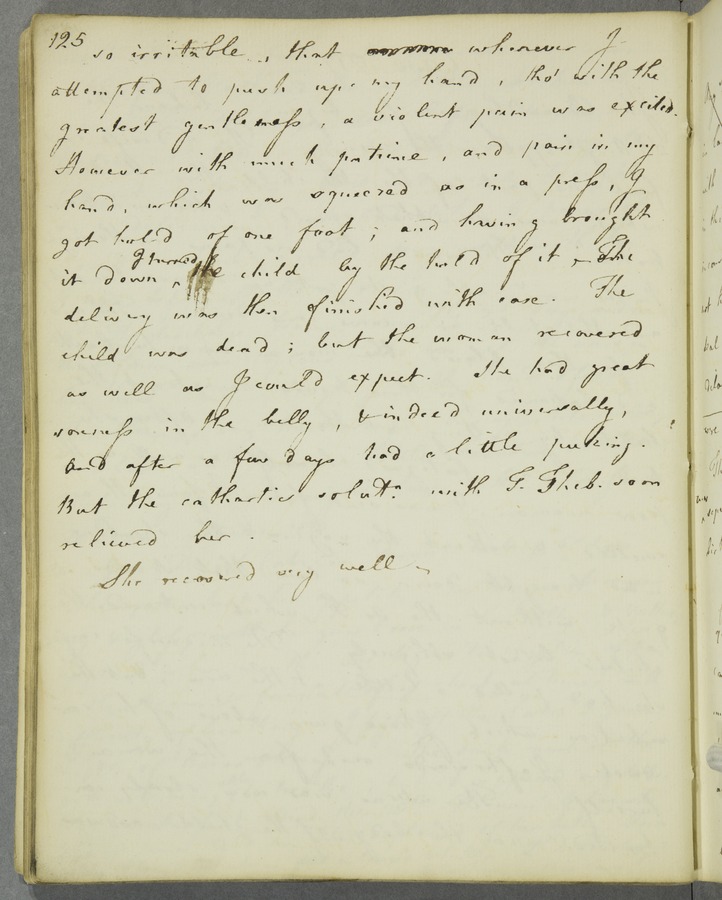 125
so irritable, that whenever I
attempted to push up my hand, tho' with the
greatest gentleness, a violent pain was excited.
However with much patience, and pain in my
hand, which was squeezed as in a press, I
got hold of one foot; and having brought
it down, I turned the child by the hold of it – The
delivery was then finished with ease. The
child was dead; but the woman recovered
as well as I could expect. She had great
soreness in the belly, & indeed universally,
and after a few days had a little puking.
But the cathartic solutn. with T. Theb. soon
relieved her.
She recovered very well –